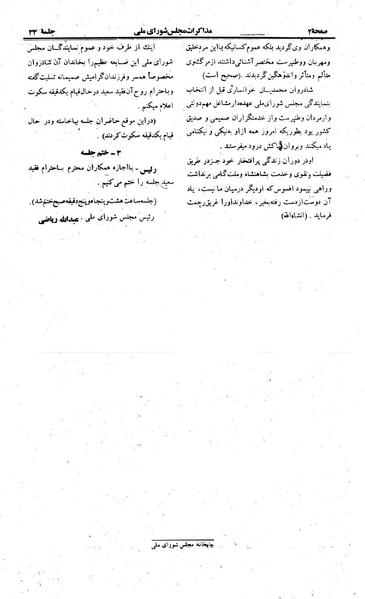 صفحه۲
مذاکرات مجلس شورای ملی
جلسهٔ ۳۳
وهمکاران وی گردید بلکه عموم کسانیکه با این مرد خلیق
ومهربان ووطنپرست مختصر آشنائی داشتند از مرگ وی
متألم ومتأثر واندوهگین گردیدند (صحیح است)
شادروان محمدبیان خوانساری قبل از انتخاب
بنمایندگی مجلس شورای ملی عهده‌دار مشاغل مهم دولتی
وازمردان وطنپرست واز خدمتگزاران صمیمی و صدیق
کشور بود بطوریکه امروز همه ازاو به‌نیکی و نیکنامی
یاد میکنند و بروان پاکش درود میفرستند.
اودر دوران زندگی پرافتخار خود جزدر طریق
فضیلت وتقوی وخدمت بشاهنشاه وملت گامی برنداشت
وراهی نپیمود افسوس که اودیگر درمیان ما نیست، یاد
آن دوست ازدست رفته بخیر، خداوند اورا غریق رحمت
فرماید. (انشاءالله)
اینک از طرف خود و عموم نمایندگان مجلس
شورای ملی این ضایعه عظیم را بخاندان آن شادروان
مخصوصاً همسر وفرزندان گرامیش صمیمانه تسلیت گفته
وباحترام روح آن فقید سعید درحال قیام یکدقیقه سکوت
اعلام میکنم.
(دراین موقع حاضران جلسه بپاخاسته ودر حال
قیام یکدقیقه سکوت کردند).
۳ - ختم جلسه
رئیس - بااجازه همکاران محترم باحترام فقید
سعید جلسه را ختم می‌کنیم.
(جلسه ساعت هشت و پنجاه و پنج دقیقه صبح ختم شد).
رئیس مجلس شورای ملی. عبدالله ریاضی
چاپخانه مجلس شورای ملی